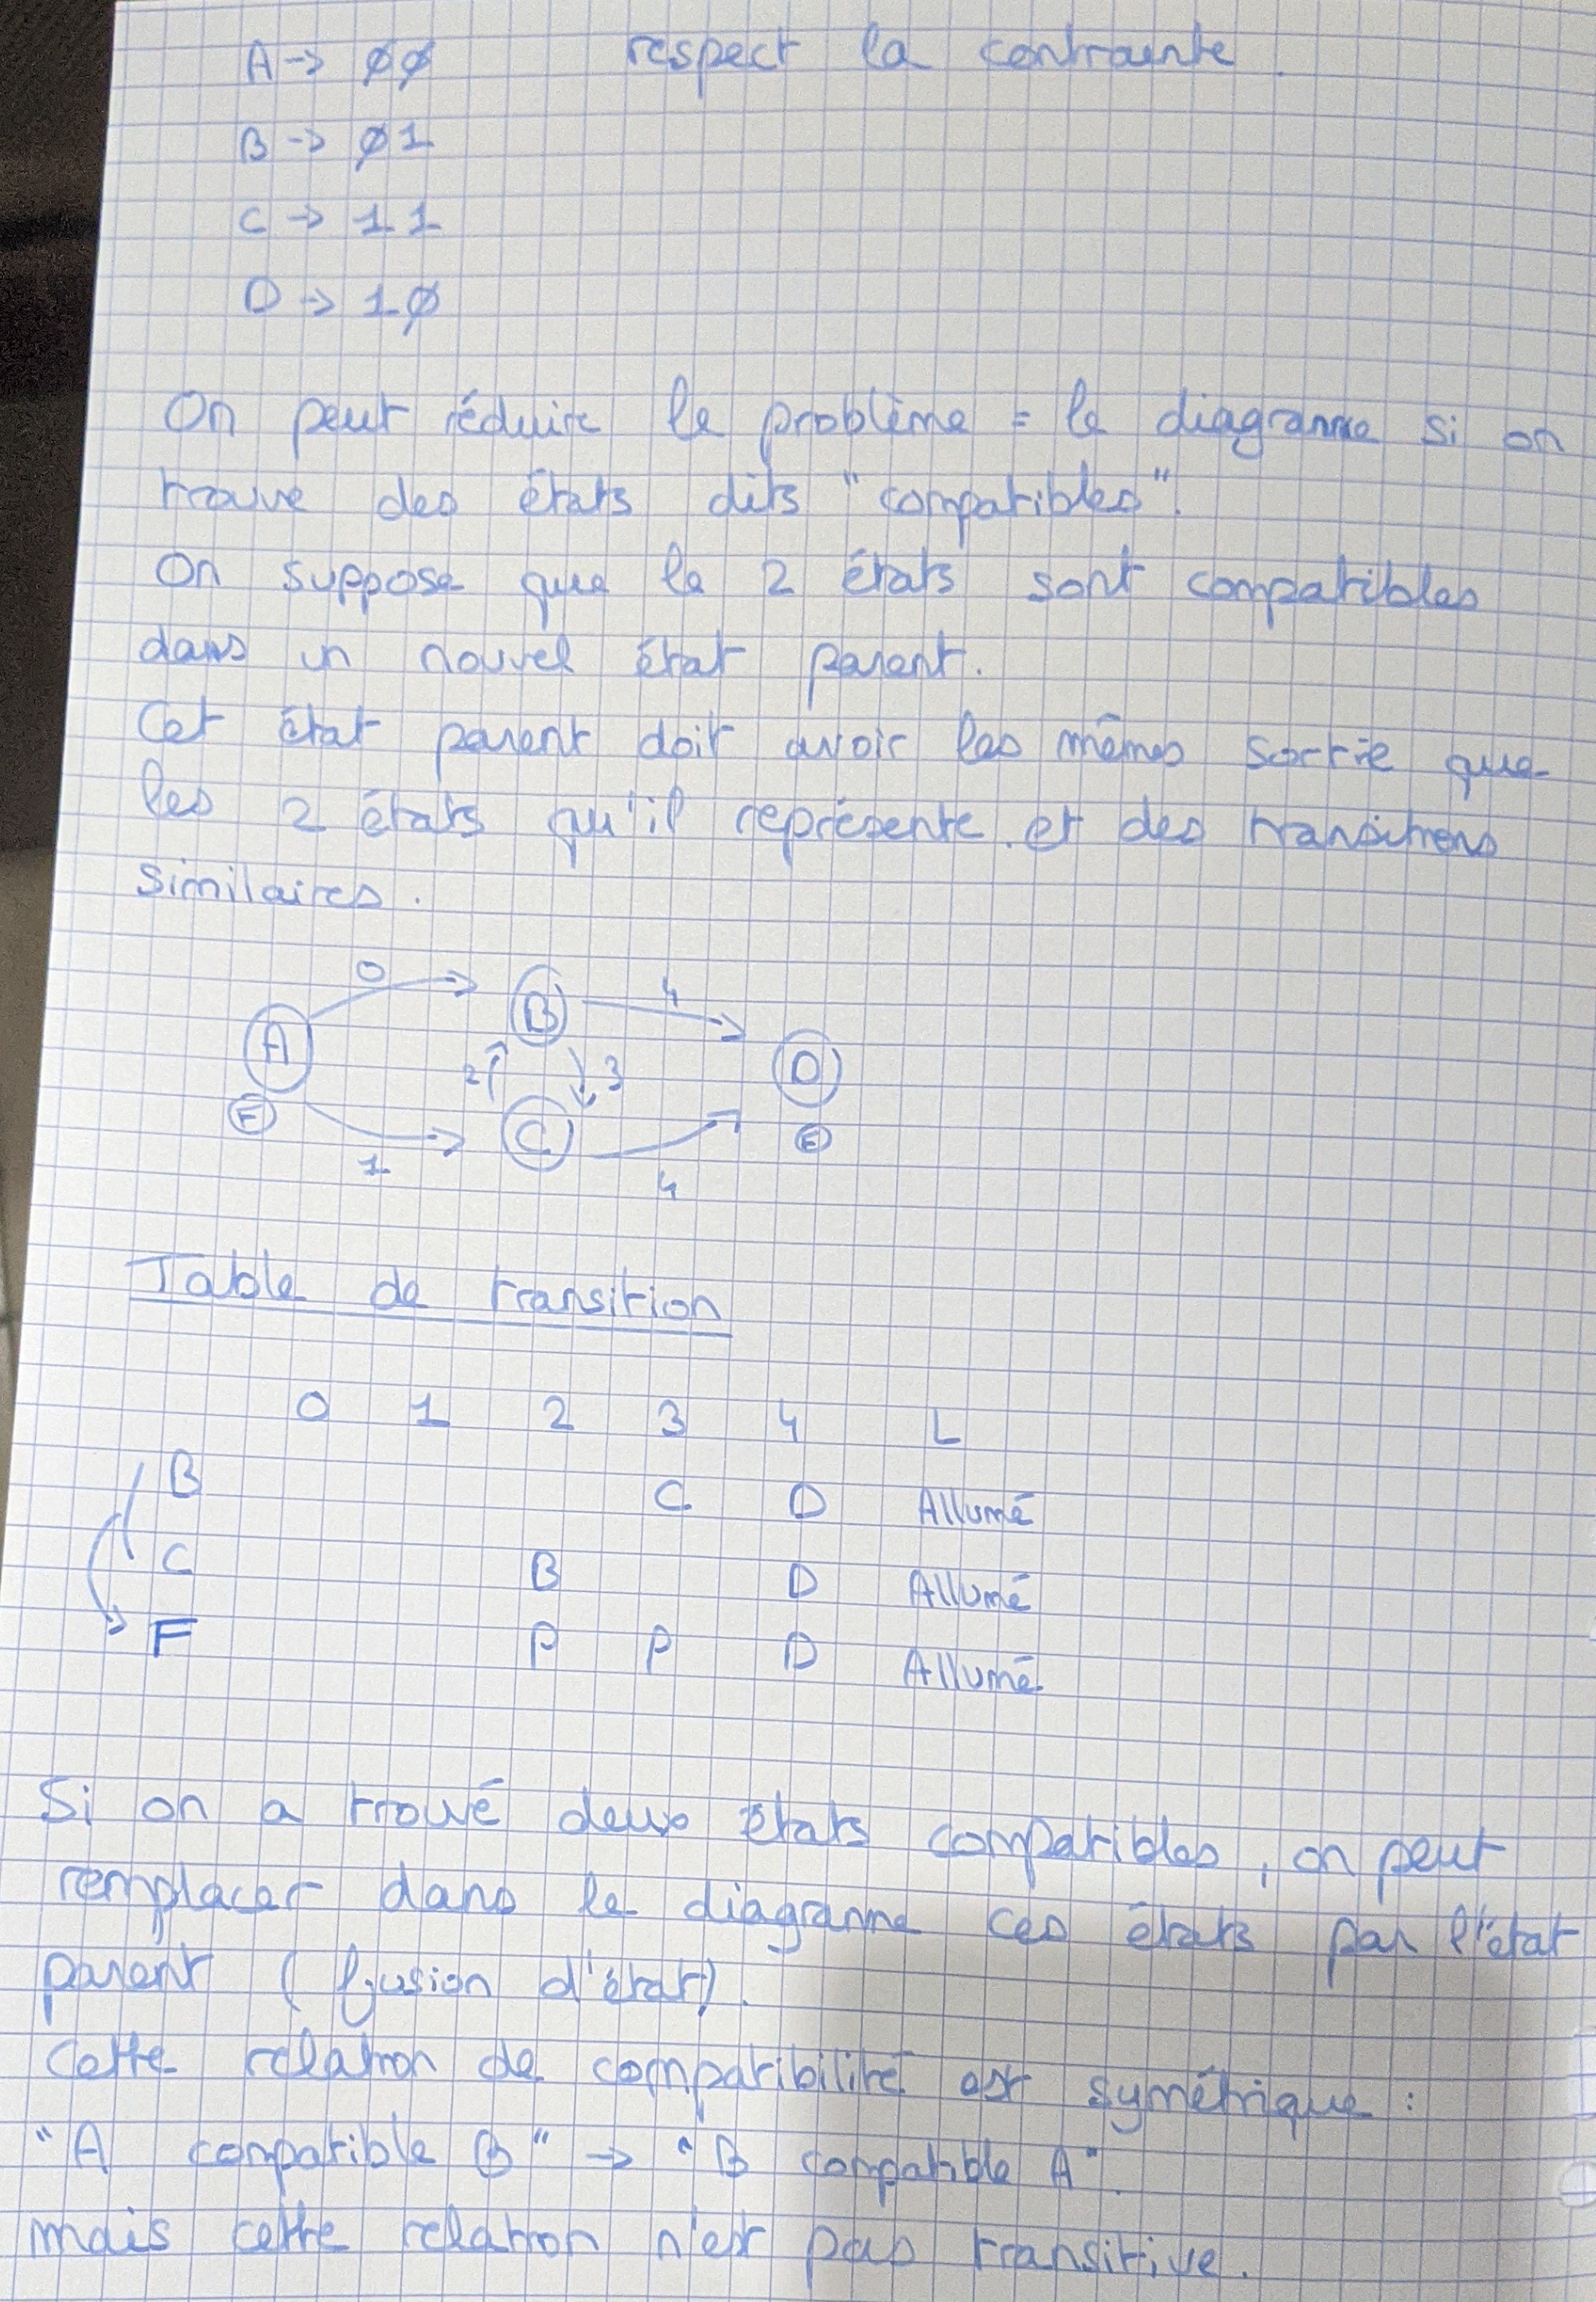 A -> ØØ respect la contrainte.
B -> Ø1
C -> 11
D -> 1Ø
On peut réduire le problème = le diagramme si on
trouve des états dits "compatibles".
On suppose que le 2 états sont compatibles
dans un nouvel état parent.
Cet état parent doit avoir les mêmes sortie que
les 2 états qu'il représente et des transitions
similaires.
0 B 4
A 2 3 D
E C E
1 4
Table de transition
0 1 2 3 4 L
B C D Allumé
C B D Allumé
F P P D Allumé
Si on a trouvé deux états compatibles, on peut
remplacer dans le diagramme ces états par l'état
parent (fusion d'état).
Cette relation de compatibilité est symétrique :
"A compatible B" -> "B compatible A".
mais cette relation n'est pas transitive.